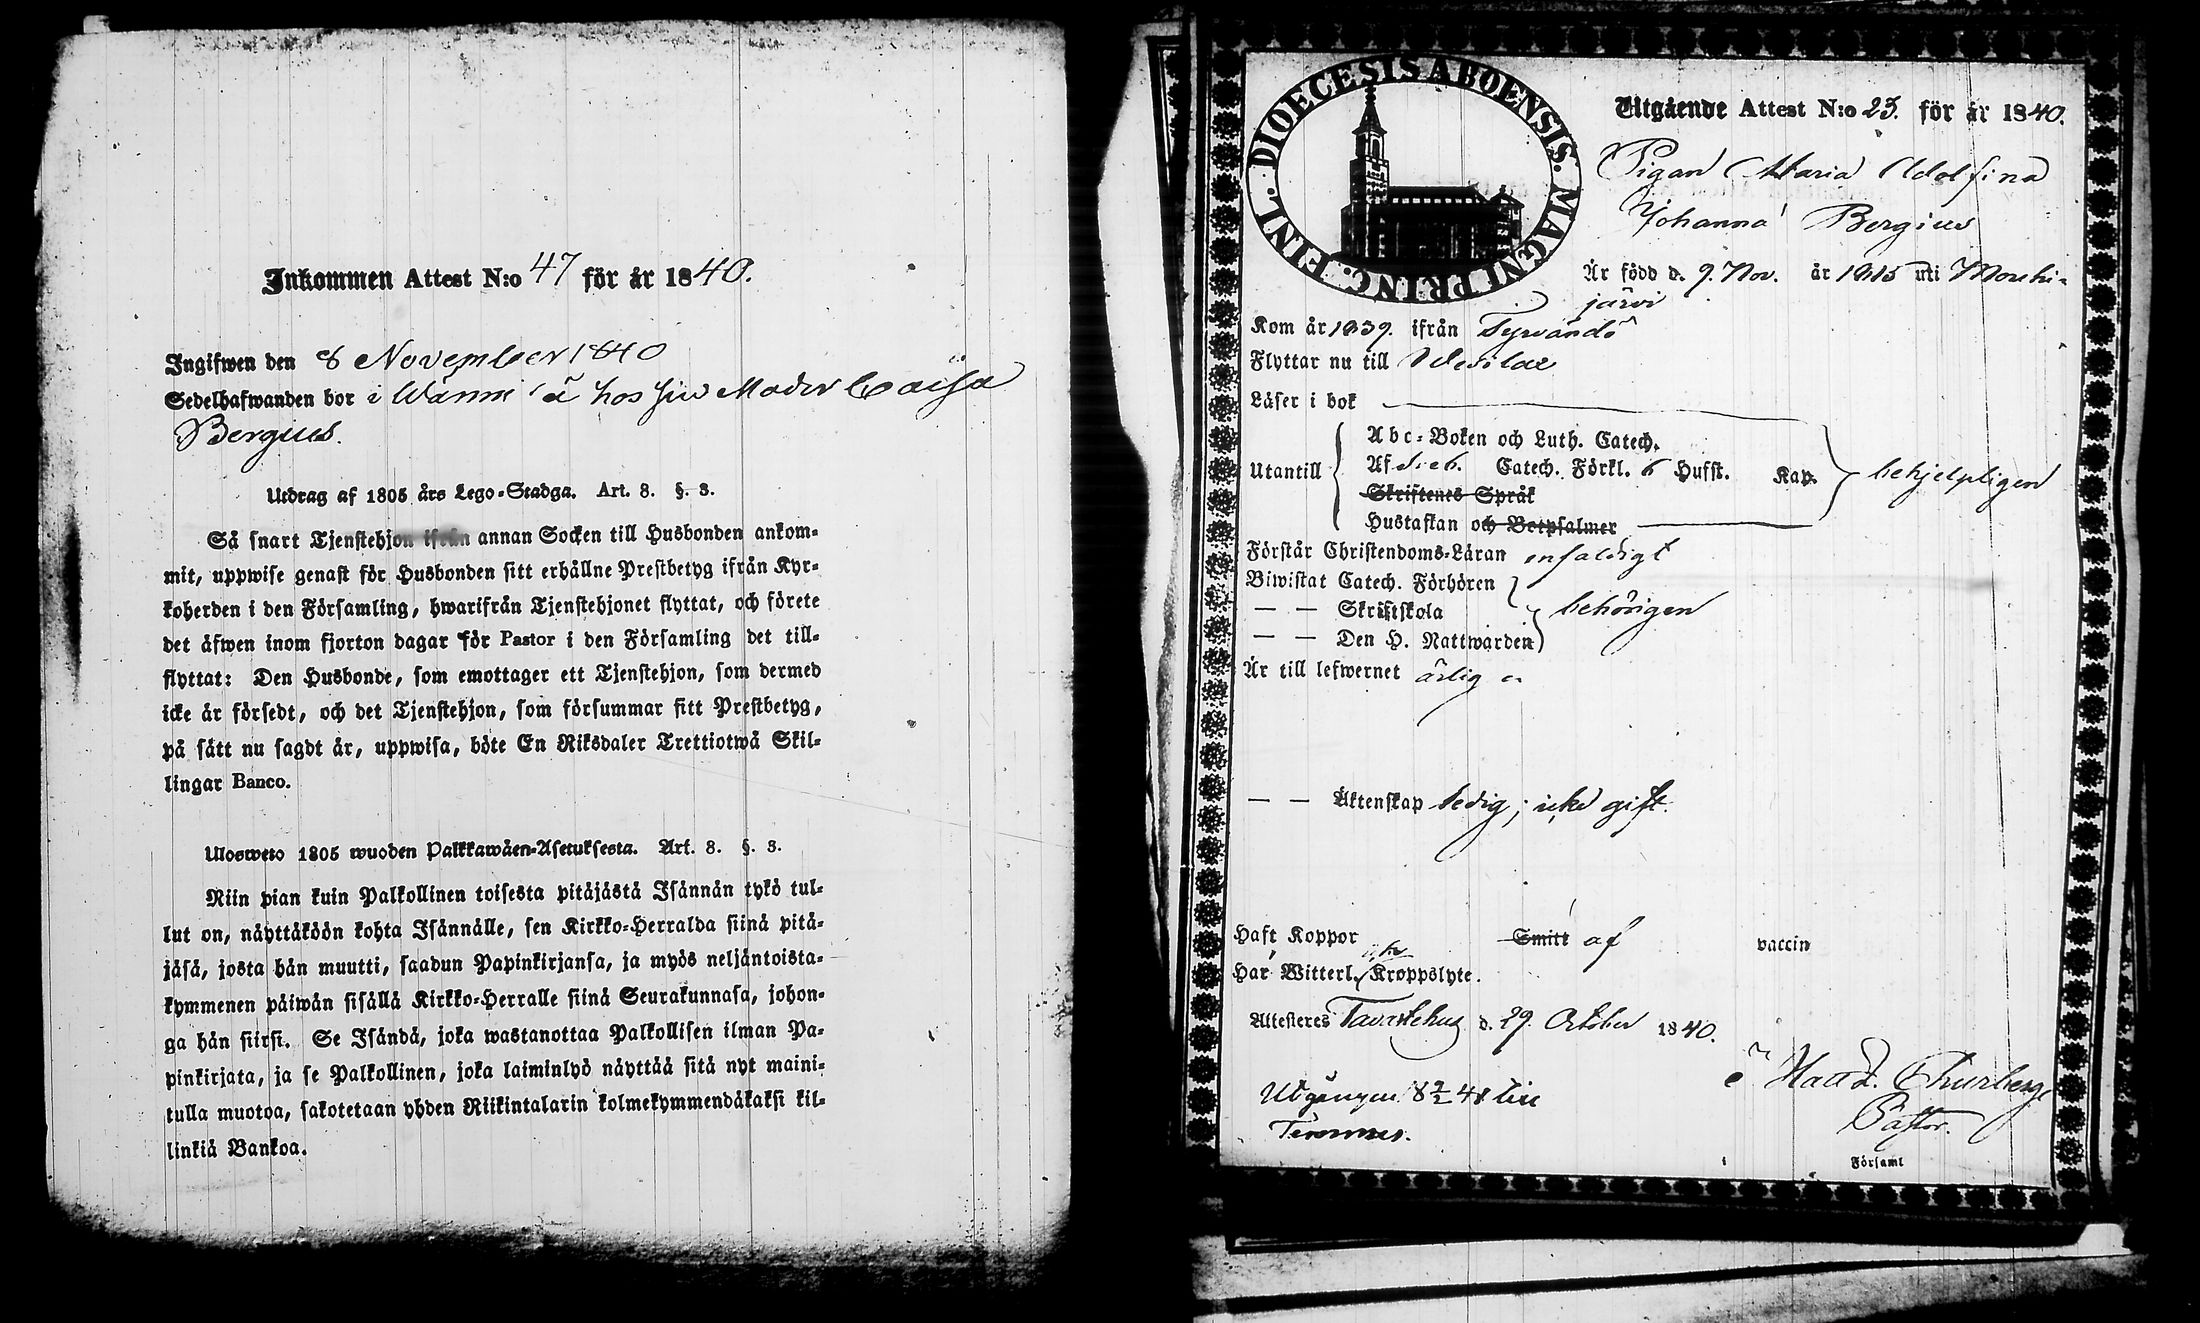 Inkommen Attest N:o 47 för år 1840.
Ingifwen den 8 November 1840
Sedelhafwanden bor i Wännilä hos sin Moder Caisa
Bergius.
Utdrag af 1805 års Lego-Stadga. Art. 8. §. 3.
Så snart Tjenstehjon ifrån annan Socken till Husbonden ankom-
mit, uppwise genast för Husbonden sitt erhållne Prestbetyg ifrån Kyr-
koherden i den Församling, hwarifrån Tjenstehjonet flyttat, och förete
det äfwen inom fjorton dagar för Pastor i den Församling det till-
flyttat: Den Husbonde, som emottager ett Tjenstehjon, som dermed
icke är försedt, och det Tjenstehjon, som försummar sitt Prestbetyg,
på sätt nu sagdt är, uppwisa, böte En Riksdaler Trettiotwå Skil-
lingar Banco.
Ulosweto 1805 wuoden Palkkawäen-Asetuksesta. Art. 8. §. 3.
Niin pian kuin Palkollinen toisesta pitäjästä Isännän tykö tul-
lut on, näyttäköön kohta Isännälle, sen Kirkko-Herralda siinä pitä-
jäsä, josta hän muutti, saadun Papinkirjansa, ja myös neljäntoista-
kymmenen päiwän sisällä Kirkko-Herralle siinä Seurakunnasa, johon-
ga hän siirsi. Se Isändä, joka wastanottaa Palkollisen ilman Pa-
pinkirjata, ja se Palkollinen, joka laiminlyö näyttää sitä nyt maini-
tulla muotoa, sakotetaan yhden Riikintalarin kolmekymmendäkaksi kil-
linkiä Bankoa.
FINL. DIOECESIS ABOENSIS. MAGNI PRINC.
Utgående Attest N:o 23. för år 1840.
Pigan Maria Adolfina
Johanna Bergius
Är född d. 9. Nov. år 1815 uti Mouhi-
järvi
Kom år 1839. ifrån Tyrvändö
Flyttar nu till Wesilax
Läser i bok
Abc-Boken och Luth. Catech.
Utantill Af Sveb. Catech. Förkl. 6 Hufst. Kap. behjelpligen
Skriftenes Språk
Hustaflan och Botpsalmer
Förstår Christendoms-Läran enfaldigt
Biwistat Catech. Förhören
— — Skriftskola behörigen
— — Den H. Nattwarden
Är till lefwernet ärlig
— — Äktenskap ledig; icke gift.
Haft Koppor Smitt af vaccin
Har Witterl. icke Kroppslyte.
Attesteres Tavastehus d. 29. October 1840.
Pastor.
Församl